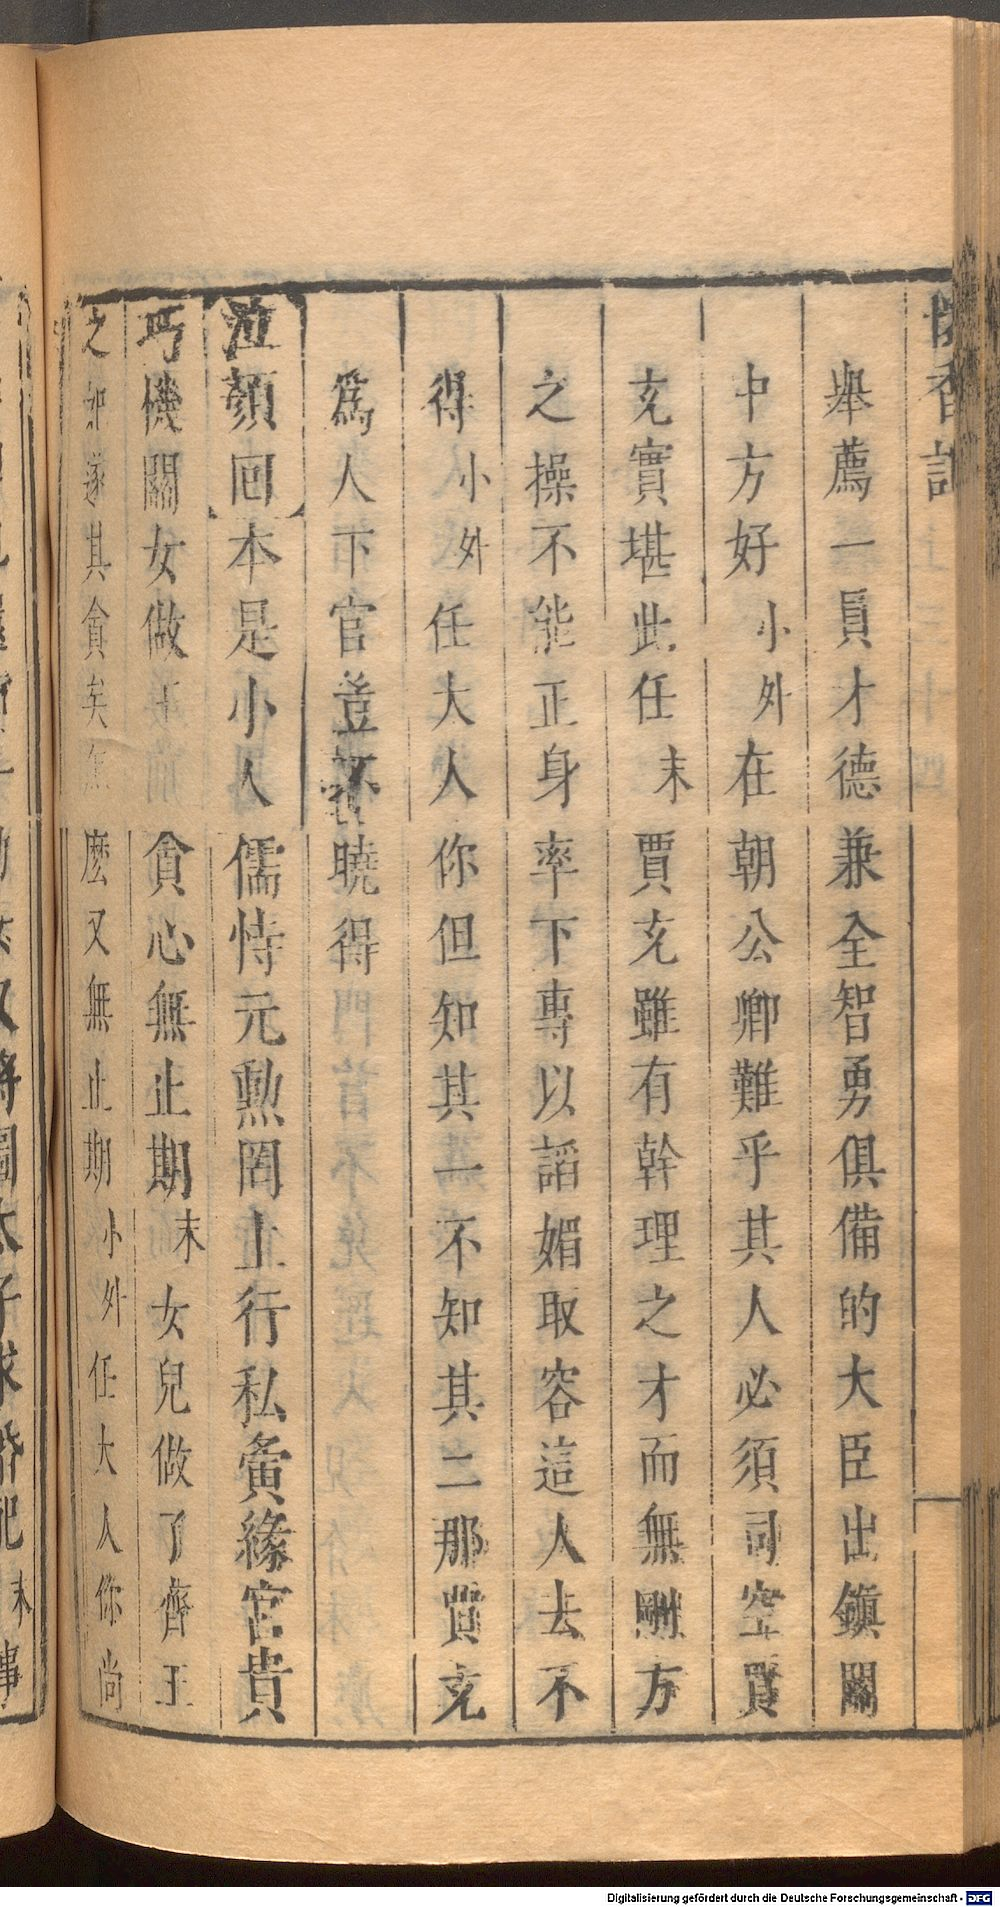 懷香記
舉薦一員才德兼全智勇俱備的大臣出鎮關
中方好小外在朝公卿難乎其人必須司空賈
充實堪此任末賈充雖有幹理之才而無剛方
之操不能正身率下專以謟媚取容這人去不
得小外任大人你但知其一不知其二那賈充
為人下官豈不曉得
泣顏回本是小人儒恃元勲罔上行私夤緣宦貴
巧機關女做王貪心無止期末女兒做了齊王
之如遂其貪矣怎麼又無止期小外任大人你尚
Digitalisierung gefördert durch die Deutsche Forschungsgemeinschaft - DFG